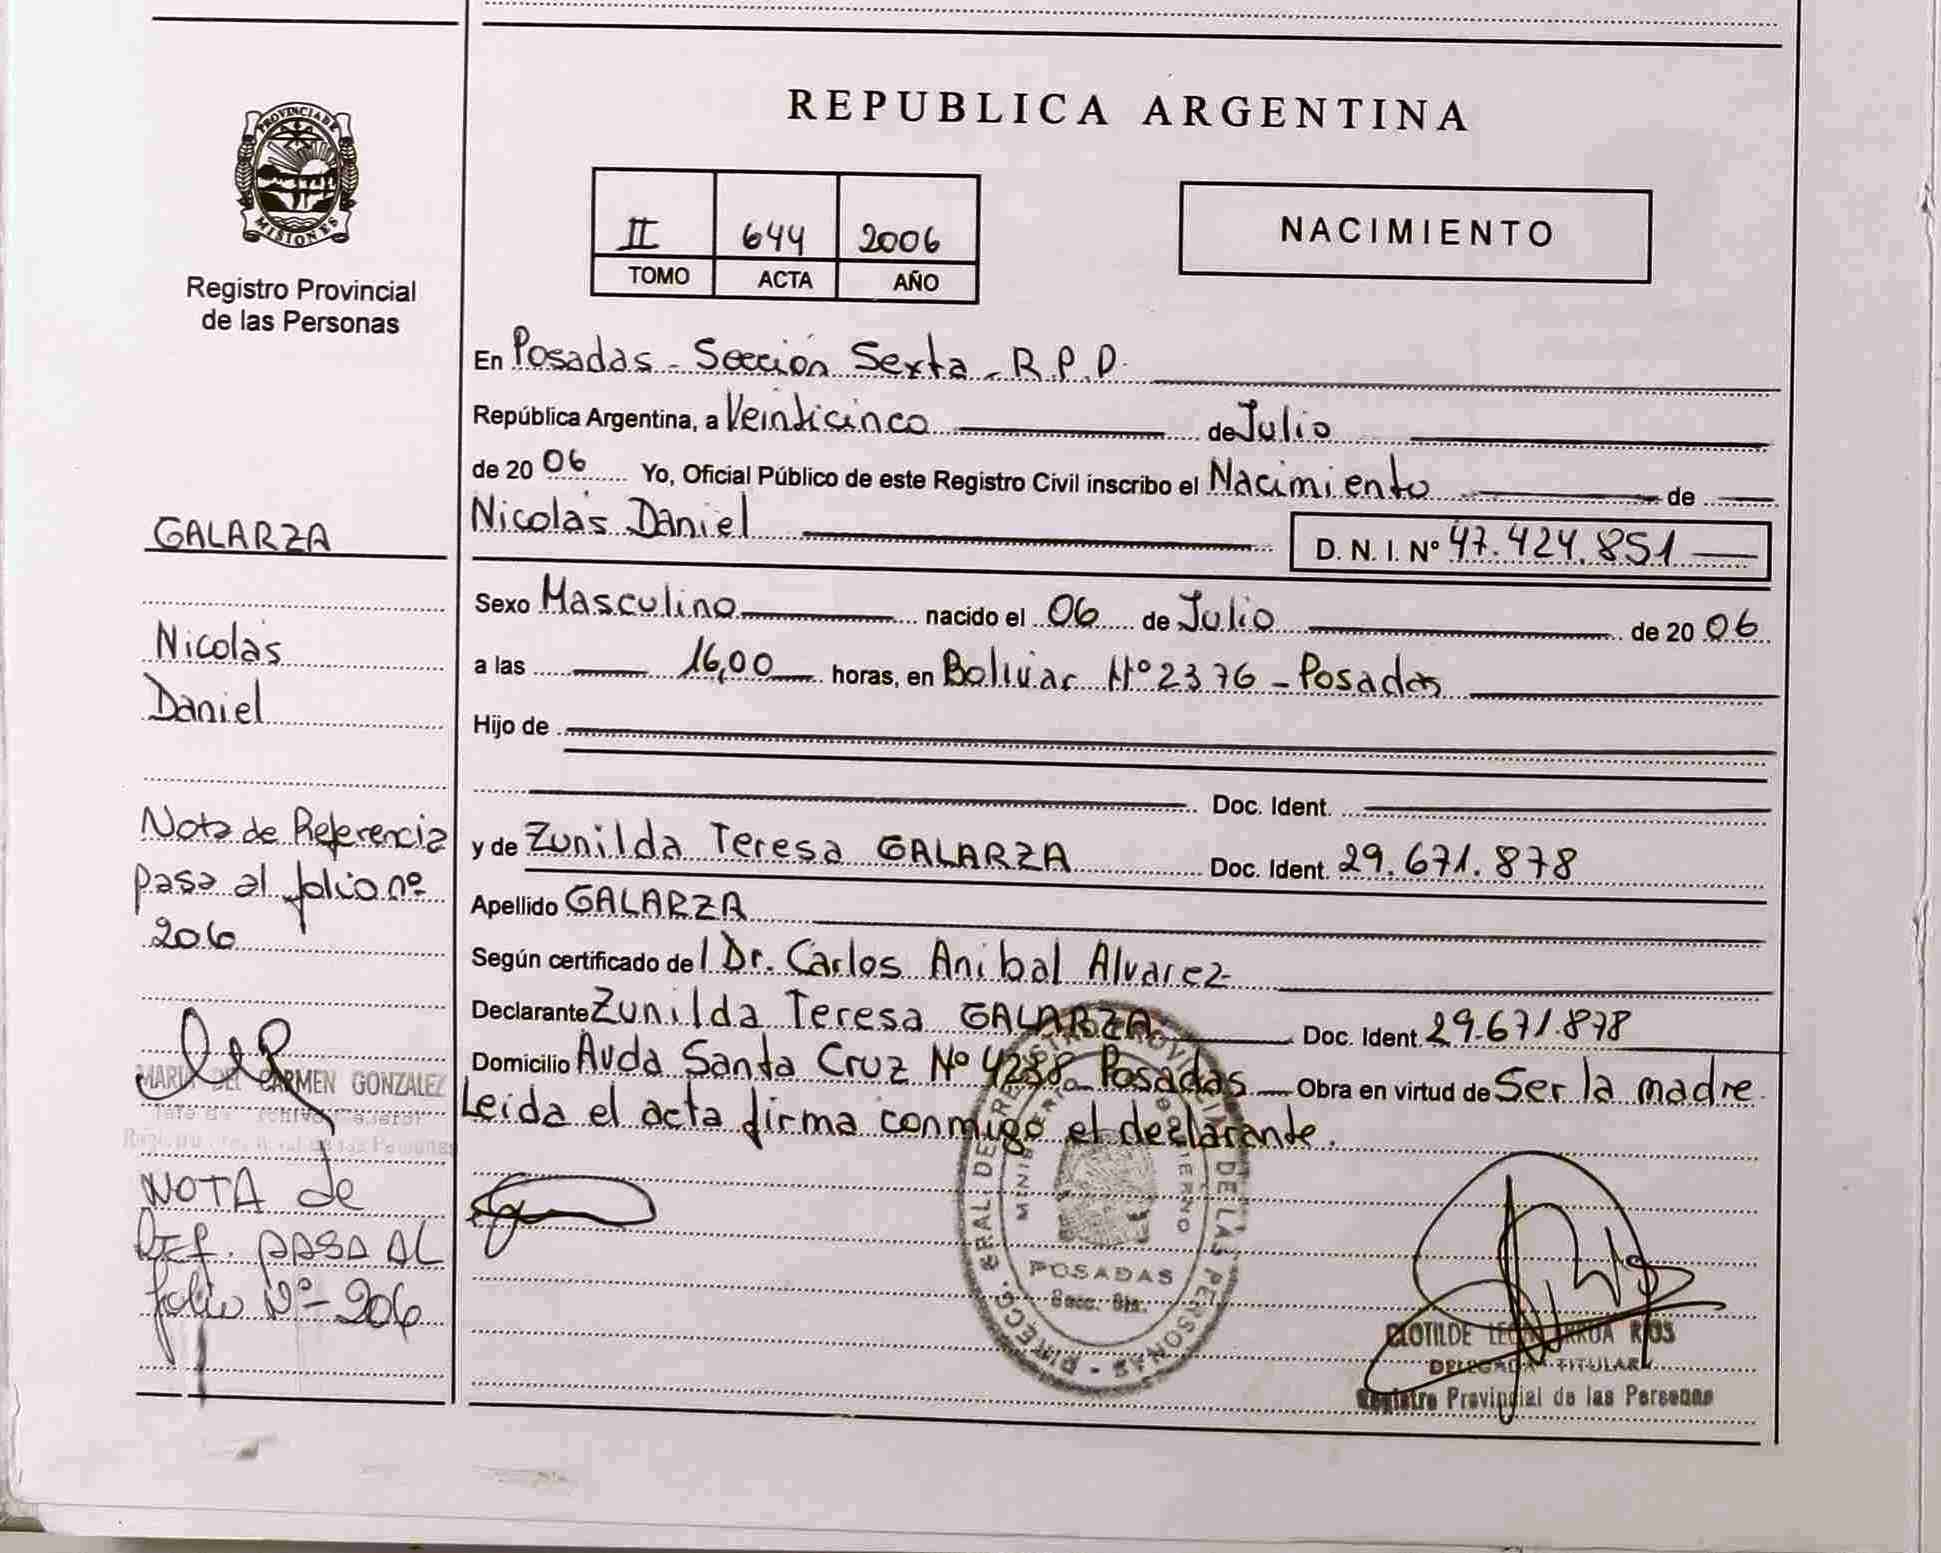 PROVINCIA DE
MISIONES
Registro Provincial
de las Personas
GALARZA
Nicolás
Daniel
Nota de Referencia
pasa al folio nº
206
MARIA DEL CARMEN GONZALEZ
NOTA de
Ref. PASA AL
folio Nº- 206
REPUBLICA ARGENTINA
II 644 2006
TOMO ACTA AÑO
NACIMIENTO
En Posadas - Sección Sexta - R.P.D.
República Argentina, a Veinticinco de Julio
de 2006 Yo, Oficial Público de este Registro Civil inscribo el Nacimiento de
Nicolás Daniel D. N. I. Nº 47.424.851
Sexo Masculino nacido el 06 de Julio de 2006
a las 16,00 horas, en Bolivar Nº 2376 - Posadas
Hijo de
Doc. Ident.
y de Zunilda Teresa GALARZA Doc. Ident. 29.671.878
Apellido GALARZA
Según certificado del Dr. Carlos Anibal Alvarez
Declarante Zunilda Teresa GALARZA Doc. Ident. 29.671.878
Domicilio Avda Santa Cruz Nº 4288 Posadas Obra en virtud de Ser la madre.
Leida el acta firma conmigo el declarante.
POSADAS
Secc. 6ta.
CLOTILDE RIOS
DELEGADA TITULAR
Registro Provincial de las Personas